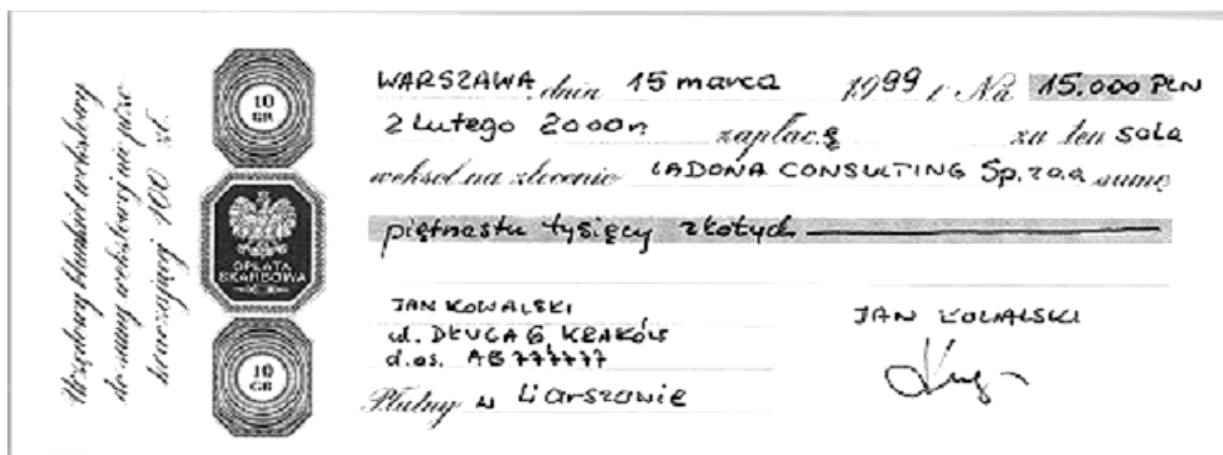 Urzędowy blankiet wekslowy
do sumy wekslowej nie prze-
kraczającej 100 zł.
10
GR
OPŁATA
SKARBOWA
10
GR
WARSZAWA, dnia 15 marca 1999 r. Na 15.000 PLN
2 Lutego 2000r. zapłac.ę za ten sola
weksel na zlecenie LADONA CONSULTING Sp. z o.o sumę
piętnastu tysięcy złotych
JAN KOWALSKI
ul. DŁUGA 6, KRAKÓW
d.os. AB 777777
Płatny w Warszawie
JAN KOWALSKI